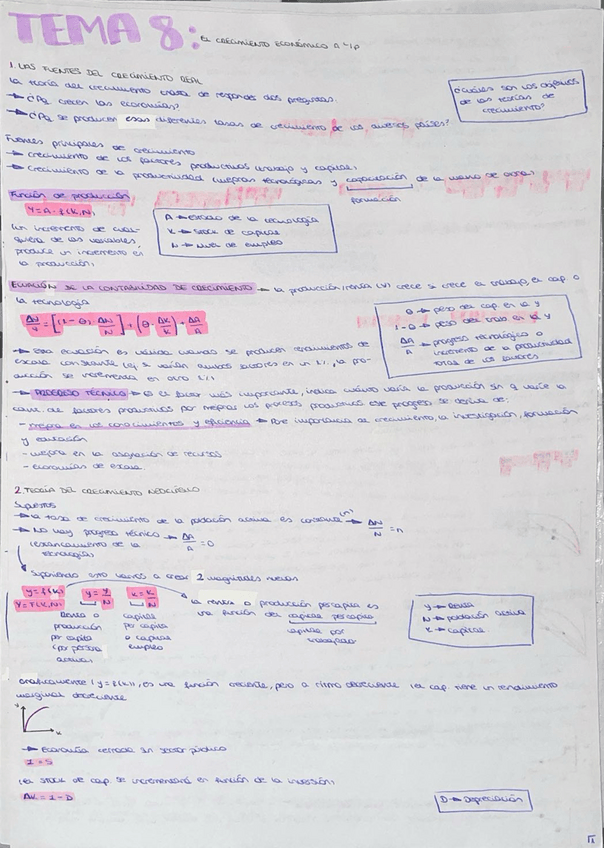 TEMA 8: EL CRECIMIENTO ECONÓMICO A LP
1. LAS FUENTES DEL CRECIMIENTO REAL
La teoría del crecimiento trata de responder dos preguntas:
→ ¿Pq crecen las economías?
→ ¿Pq se producen esas diferentes tasas de crecimiento de los diversos países?
¿Cuáles son los objetivos de las teorías de crecimiento?
Fuentes principales de crecimiento
→ crecimiento de los factores productivos (trabajo y capital)
→ crecimiento de la productividad (mejoras tecnológicas y capacitación de la mano de obra)
formación
Función de producción
Y = A · f(K,N)
(un incremento de cualquiera de las variables, produce un incremento en la producción)
A → Estado de la tecnología
K → Stock de capital
N → Nivel de empleo
ECUACIÓN DE LA CONTABILIDAD DE CRECIMIENTO → la producción/renta (Y) crece si crece el trabajo, el cap o
la tecnología
ΔY/Y = [(1-θ) · ΔN/N] + (θ · ΔK/K) + ΔA/A
θ → peso del cap. en la Y
1-θ → peso del trab. en la Y
ΔA/A → progreso tecnológico o
incremento de la productividad
total de los factores
→ Esta ecuación es válida cuando se producen rendimientos de
escala constante (ej. si varían ambos factores en un 1%, la pro-
ducción se incrementa en otro 1%)
→ PROGRESO TÉCNICO → es el factor más importante, indica cuánto varía la producción sin q varíe la
cant. de factores productivos por mejoras los procesos productivos este progreso se deriva de:
- mejora en los conocimientos y eficiencia → importancia de crecimiento, la investigación, formación
y educación
- mejora en la asignación de recursos
- economías de escala
2. TEORÍA DEL CRECIMIENTO NEOCLÁSICO
Supuestos
→ la tasa de crecimiento de la población activa es constante (n) → ΔN/N = n
→ No hay progreso técnico → ΔA/A = 0
(estancamiento de la
tecnología)
Suponiendo esto vamos a crear 2 magnitudes nuevas
y = f(k) y = Y/N k = K/N
Y = F(K,N)
Renta o
producción
per cápita
(por persona
activa)
capital
per cápita
o capital
empleo
la renta o producción per cápita es
una función del capital per cápita
capital por
trabajador
Y → Renta
N → población activa
K → capital
Gráficamente (y = f(k)), es una función creciente, pero a ritmo decreciente (el cap. tiene un rendimiento
marginal decreciente
→ Economía cerrada sin sector público
I = S
(el stock de cap se incrementará en función de la inversión)
ΔK = I - D
D → Depreciación